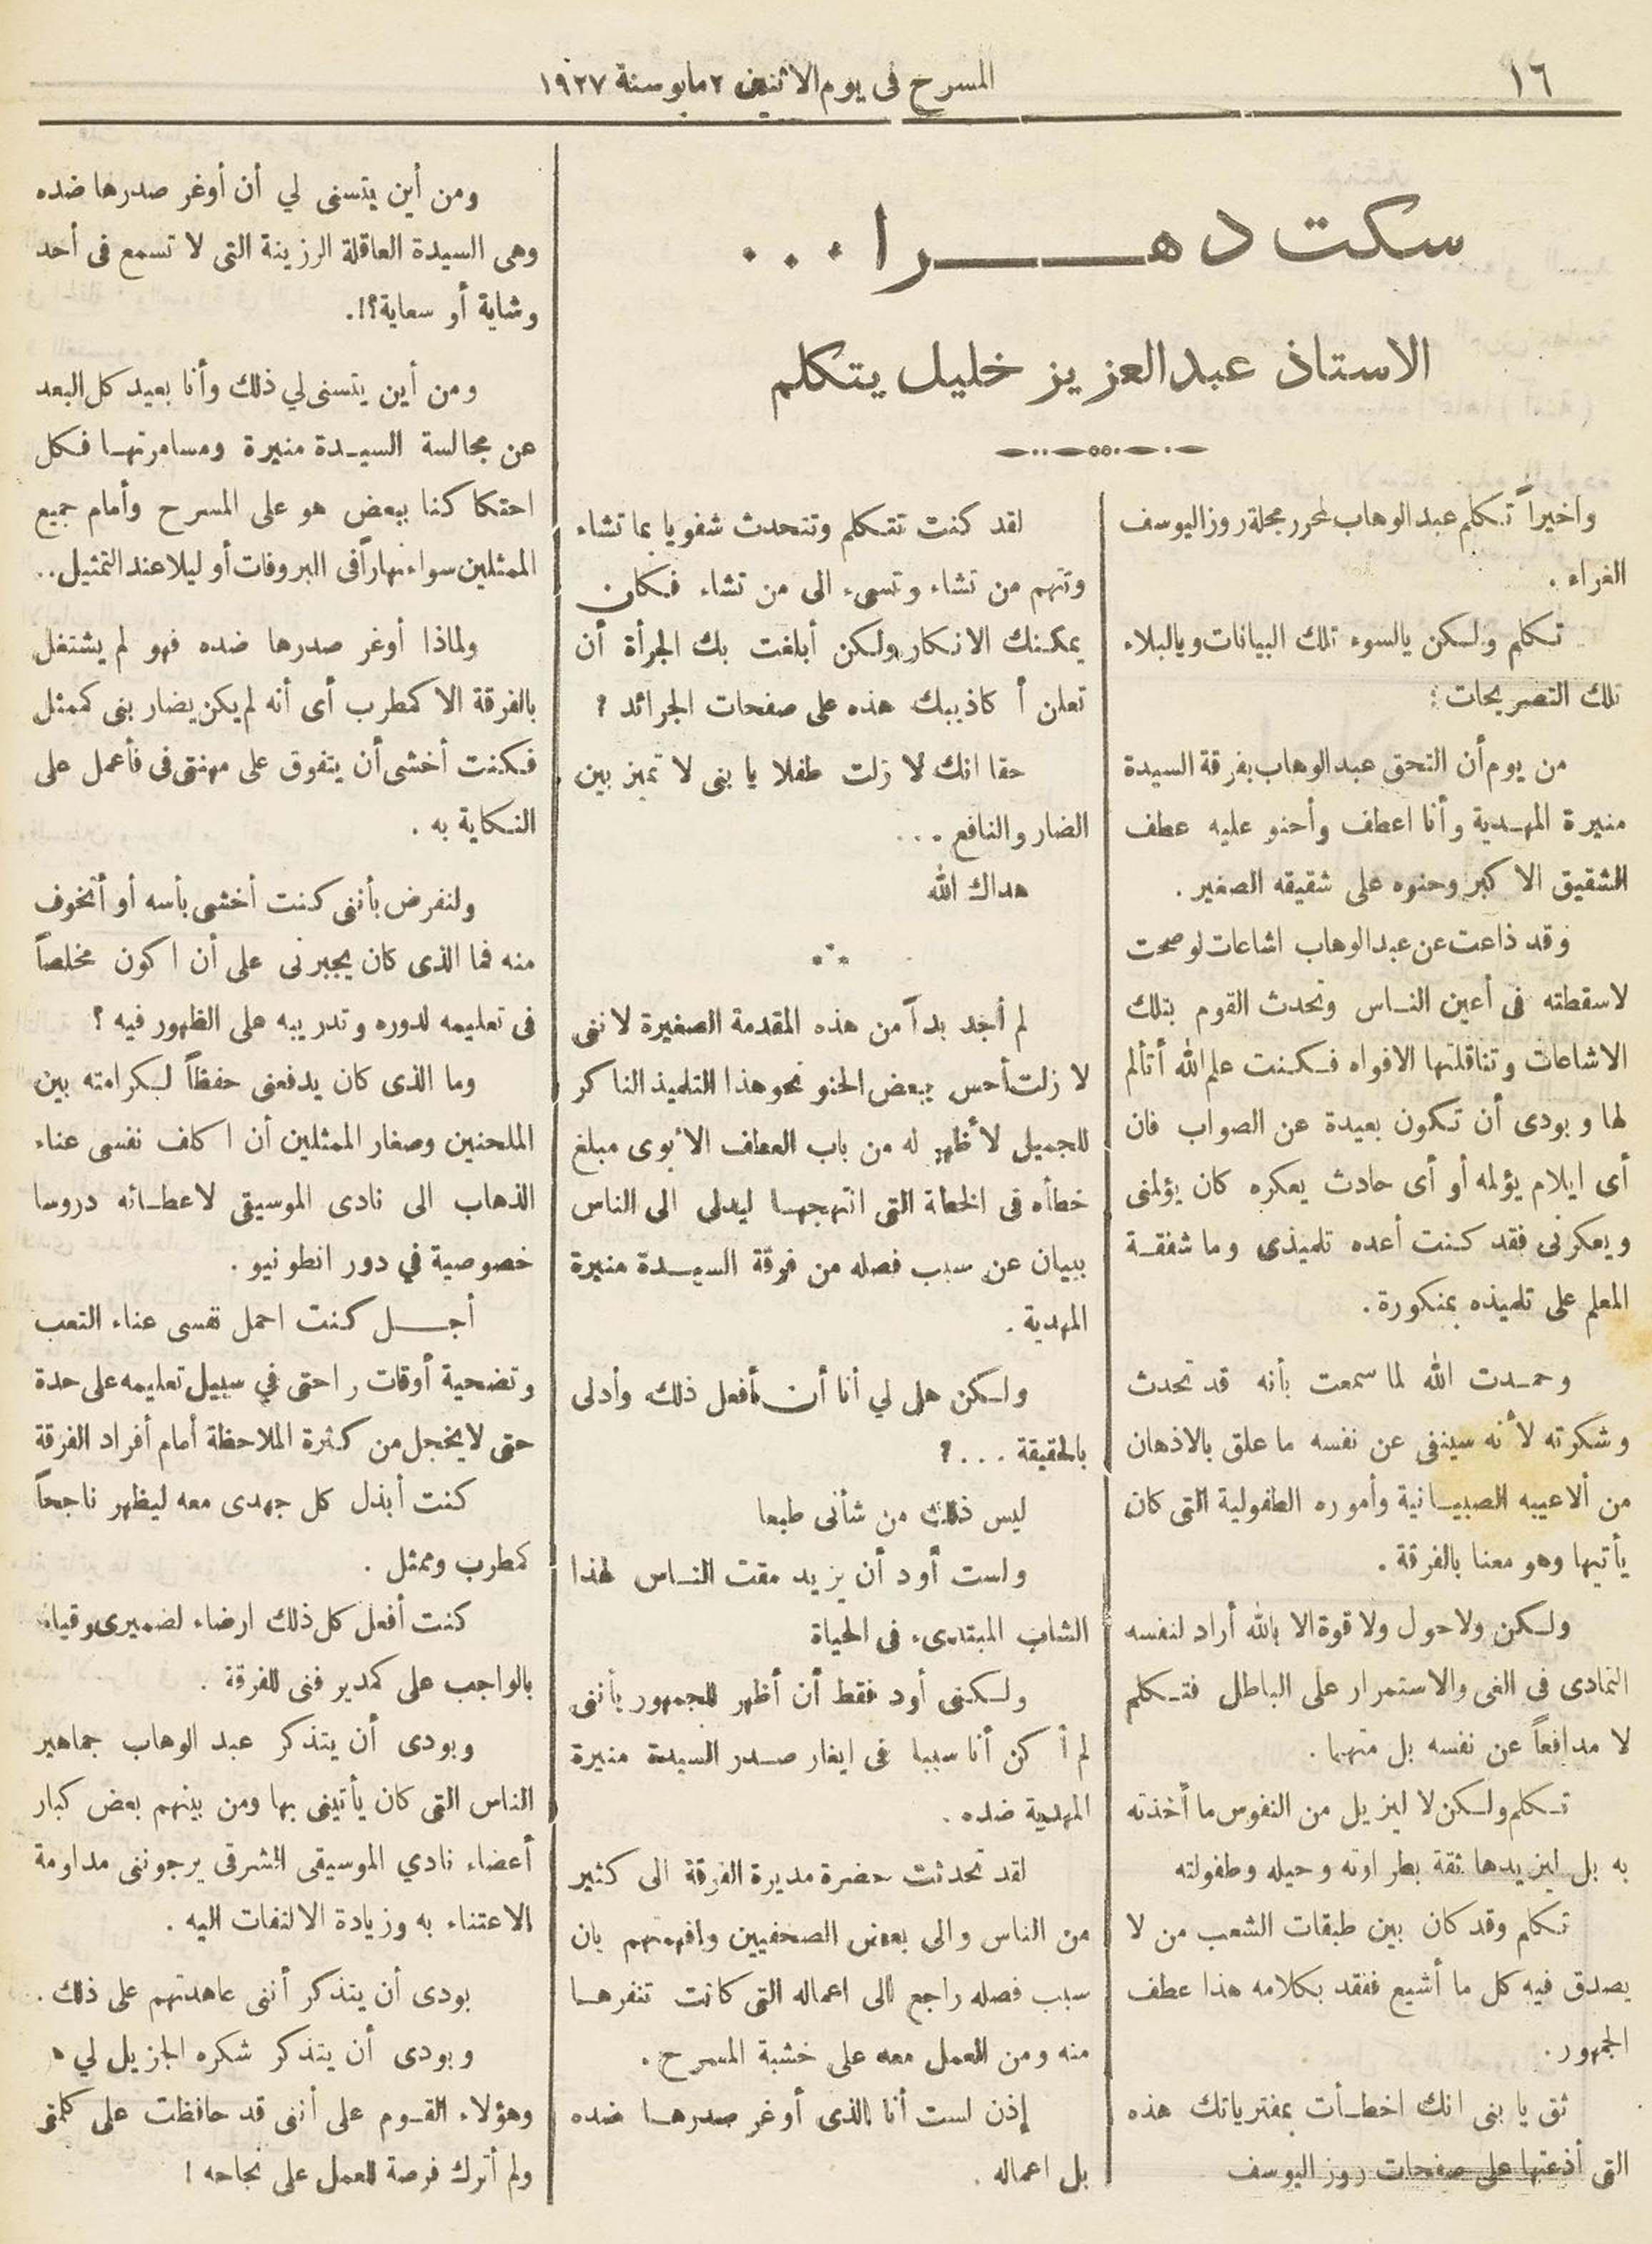 ١٦
المسرح فى يوم الاثنين ٢ مايو سنة ١٩٢٧
سكت دهـــرا ...
الاستاذ عبد العزيز خليل يتكلم
واخيراً تكلم عبد الوهاب لمحرر مجلة روز اليوسف
الغراء .
تكلم ولكن يالسوء تلك البيانات ويالبلاء
تلك التصريحات :
من يوم أن التحق عبد الوهاب بفرقة السيدة
منيرة المهدية وأنا اعطف وأحنو عليه عطف
الشقيق الاكبر وحنوه على شقيقه الصغير .
وقد ذاعت عن عبد الوهاب اشاعات لو صحت
لاسقطته فى أعين الناس وتحدث القوم بتلك
الاشاعات وتناقلتها الافواه فكنت علم الله أتألم
لها وبودى أن تكون بعيدة عن الصواب فان
أى ايلام يؤلمه أو أى حادث يعكره كان يؤلمنى
ويعكرنى فقد كنت أعده تلميذى وما شفقة
المعلم على تلميذه بمنكورة .
وحمدت الله لما سمعت بأنه قد تحدث
وشكرته لأنه سينفى عن نفسه ما علق بالاذهان
من ألاعيبه الصبيانية وأموره الطفولية التى كان
يأتيها وهو معنا بالفرقة .
ولكن ولا حول ولا قوة الا بالله أراد لنفسه
التمادى فى الغى والاستمرار على الباطل فتكلم
لا مدافعاً عن نفسه بل متهما .
تكلم ولكن لا ليزيل من النفوس ما أخذته
به بل ليزيدها ثقة بطراوته وحيله وطفولته
تكلم وقد كان بين طبقات الشعب من لا
يصدق فيه كل ما أشيع ففقد بكلامه هذا عطف
الجمهور .
ثق يا بنى انك اخطأت بمفترياتك هذه
التى أذعتها على صفحات روز اليوسف
لقد كنت تتكلم وتتحدث شفويا بما تشاء
وتتهم من تشاء وتسىء الى من تشاء فكان
يمكنك الانكار ولكن أبلغت بك الجرأة أن
تعلن أكاذيبك هذه على صفحات الجرائد ؟
حقا انك لا زلت طفلا يا بنى لا تميز بين
الضار والنافع ...
هداك الله
لم أجد بداً من هذه المقدمة الصغيرة لاننى
لا زلت أحس ببعض الحنو نحو هذا التلميذ الناكر
للجميل لأظهر له من باب العطف الأبوى مبلغ
خطأه فى الخطة التى انتهجها ليدلى الى الناس
ببيان عن سبب فصله من فرقة السيدة منيرة
المهدية .
ولكن هل لي أنا أن أفعل ذلك وأدلى
بالحقيقة ...؟
ليس ذلك من شأنى طبعا
ولست أود أن يزيد مقت الناس لهذا
الشاب المبتدىء فى الحياة
ولكنى أود فقط أن أظهر للجمهور بأننى
لم أكن أنا سببا فى ايغار صدر السيدة منيرة
المهدية ضده .
لقد تحدثت حضرة مديرة الفرقة الى كثير
من الناس والى بعض الصحفيين وافهمتهم بان
سبب فصله راجع الى اعماله التى كانت تنفرها
منه ومن العمل معه على خشبة المسرح .
إذن لست أنا الذى أوغر صدرها ضده
بل اعماله .
ومن أين يتسنى لي أن أوغر صدرها ضده
وهى السيدة العاقلة الرزينة التى لا تسمع فى أحد
وشاية أو سعاية؟!.
ومن أين يتسنى لي ذلك وأنا بعيد كل البعد
عن مجالسة السيدة منيرة ومسامرتها فكل
احتكاكنا ببعض هو على المسرح وأمام جميع
الممثلين سواء نهاراً فى البروفات أو ليلا عند التمثيل..
ولماذا أوغر صدرها ضده فهو لم يشتغل
بالفرقة الا كمطرب أى أنه لم يكن يضاربنى كممثل
فكنت أخشى أن يتفوق على مهنتى فى فأعمل على
النكاية به .
ولنفرض بأننى كنت أخشى بأسه أو أتخوف
منه فما الذى كان يجبرنى على أن اكون مخلصاً
فى تعليمه لدوره وتدريبه على الظهور فيه ؟
وما الذى كان يدفعنى حفظاً لكرامته بين
الملحنين وصغار الممثلين أن اكلف نفسى عناء
الذهاب الى نادى الموسيقى لاعطائه دروسا
خصوصية في دور انطونيو .
أجل كنت احمل نفسى عناء التعب
وتضحية أوقات راحتى في سبيل تعليمه على حدة
حتى لا يخجل من كثرة الملاحظة أمام أفراد الفرقة
كنت أبذل كل جهدى معه ليظهر ناجحاً
كمطرب وممثل .
كنت أفعل كل ذلك ارضاء لضميرى وقياما
بالواجب على كمدير فنى للفرقة .
وبودى أن يتذكر عبد الوهاب جماهير
الناس التى كان يأتينى بها ومن بينهم بعض كبار
أعضاء نادي الموسيقى الشرقى يرجوننى مداومة
الاعتناء به وزيادة الالتفات اليه .
بودى أن يتذكر أننى عاهدتهم على ذلك .
وبودى أن يتذكر شكره الجزيل لي
وهؤلاء القوم على أننى قد حافظت على كلمتى
ولم أترك فرصة للعمل على نجاحه !